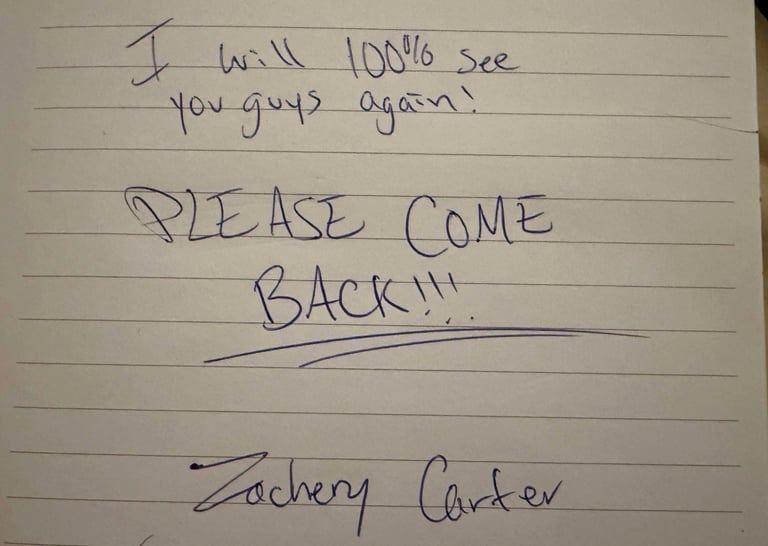 I will 100% see
you guys again!
PLEASE COME
BACK!!!
Zachery Carter